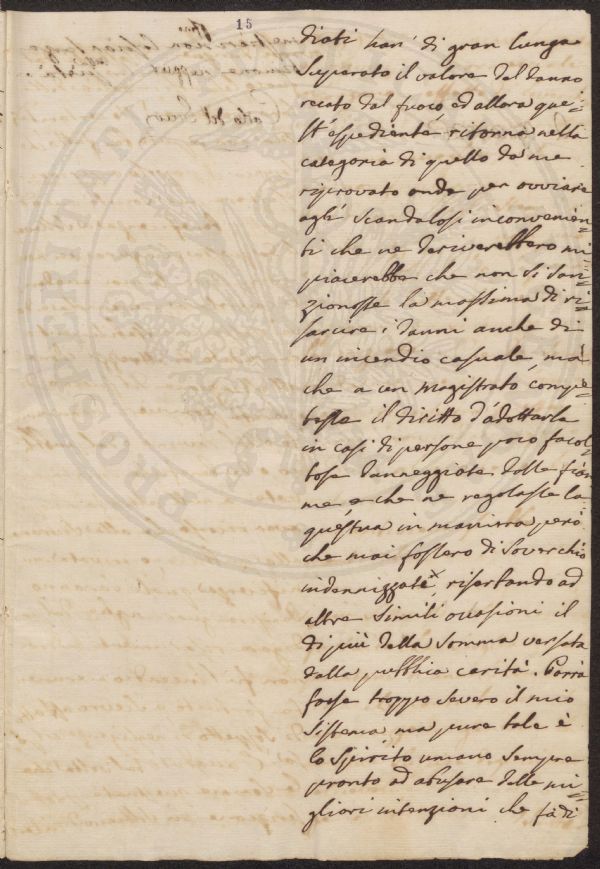 15
diati harì di gran lunga
superato il valore del danno
recato dal fuoco ed allora que=
st'espediente ritorna nella
categoria di quello da me
riprovato onde per ovviare
agli scandalosi inconvenien=
ti che ne deriverebbero mi
piacerebbe che non si san=
zionasse la massima di ri=
sarcire i danni anche di
un incendio casuale, mà
che a un Magistrato compe=
tesse il diritto d'adottarla
in casi di persone poco facol=
tose danneggiate dalle fiam=
me, e che ne regolasse la
questua in maniera però
che mai fossero di soverchio
indennizzate, riserbando ad
altre simili occasioni il
di più della somma versata
dalla pubblica carità. Parrà
forse troppo severo il mio
sistema ma pure tale è
lo spirito umano sempre
pronto ad abusare delle mi=
gliori intenzioni che fà di
PROSPERITATI